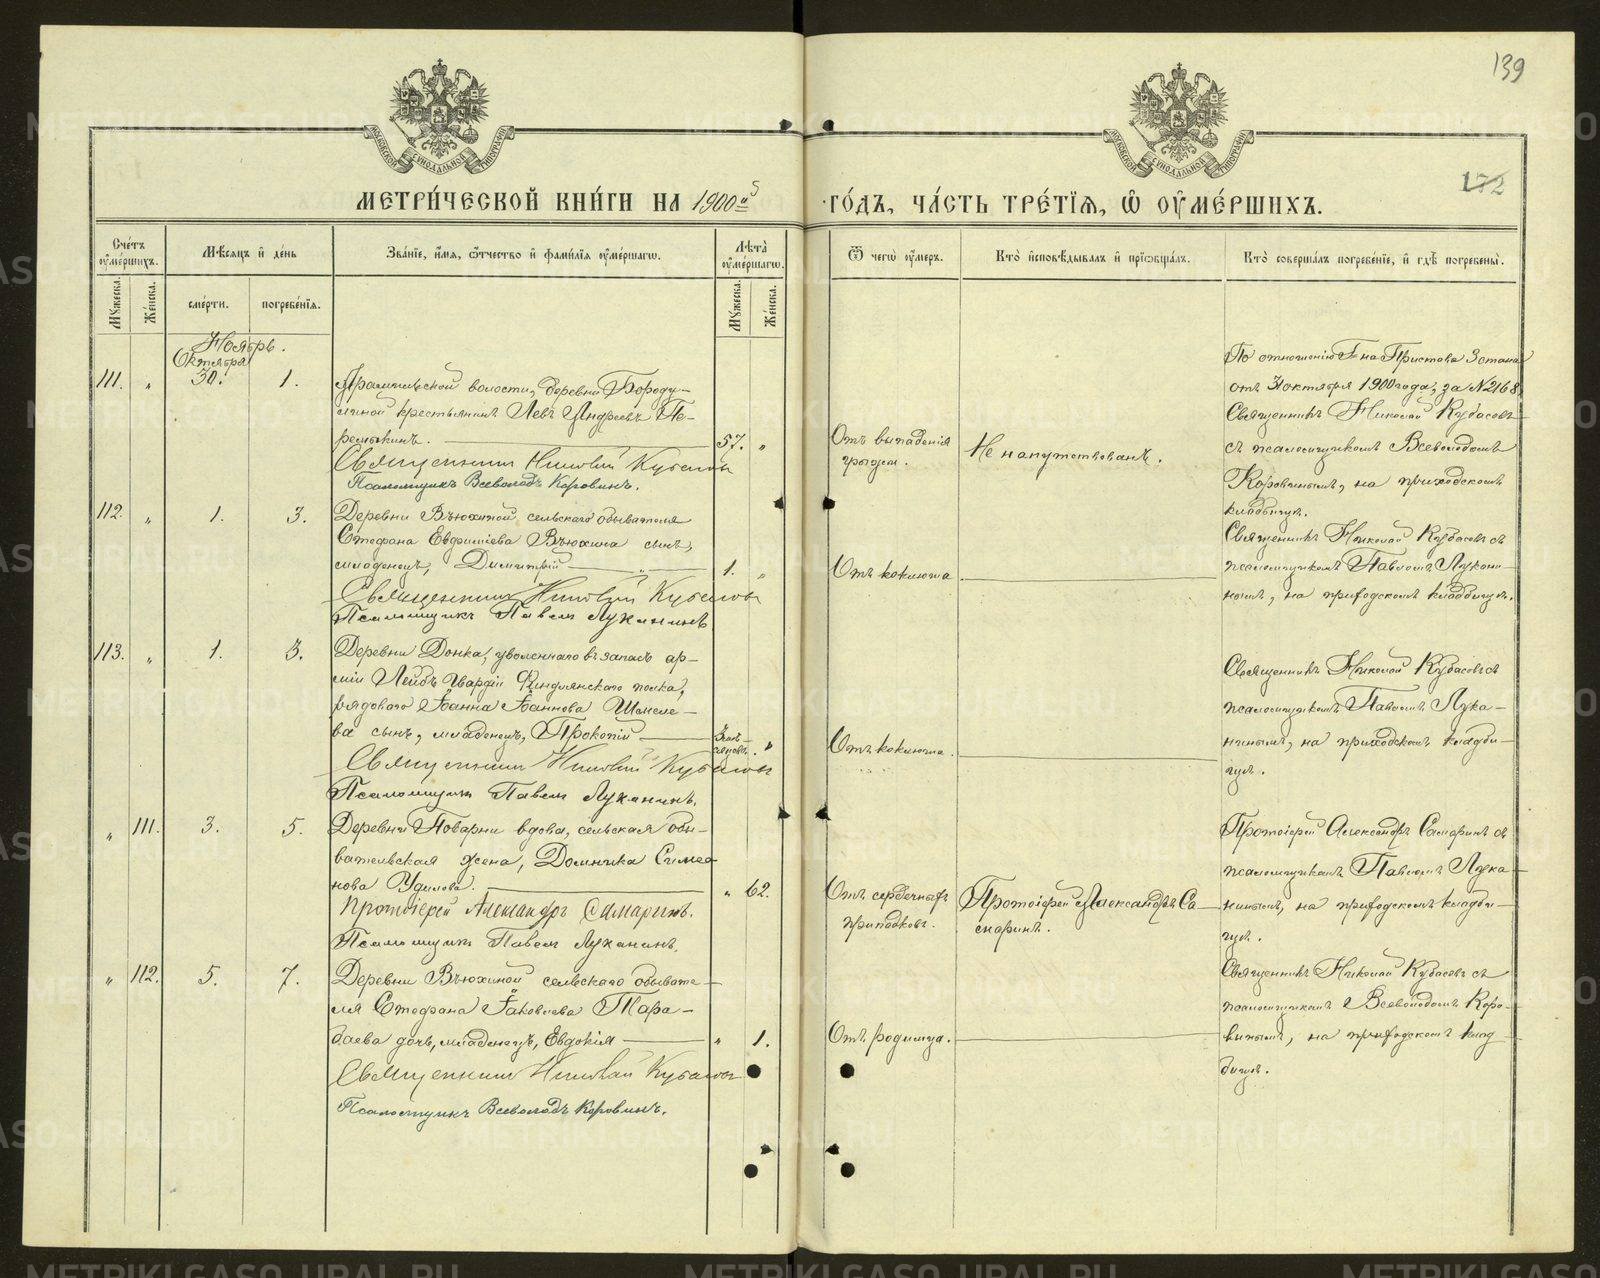 139
172
МОСКОВСКОЙ СѴНОДАЛЬНОЙ ТИПОГРАФІИ
МОСКОВСКОЙ СѴНОДАЛЬНОЙ ТИПОГРАФІИ
МЕТРИ́ЧЕСКОЙ КНИ́ГИ НА 1900й
ГО́ДЪ, ЧА́СТЬ ТРЕ́ТІѦ, Ѡ ОУ҆МЕ́РШИХЪ.
Сче́тъ оу҆ме́ршихъ.
Мѣ́сяцъ и҆ де́нь
Зва́ніе, и҆́мѧ, ѻ҆́тчество и҆ фами́лїѧ оу҆ме́ршагѡ.
Лѣта̀ оу҆ме́ршагѡ.
Ѿ чегѡ̀ оу҆́меръ.
Кто̀ и҆сповѣ́дывалъ и҆ прїѡбща́лъ.
Кто̀ соверша́лъ погребе́нїе, и҆ гдѣ̀ погребены̀.
Мꙋ́жеска. Же́нска.
сме́рти. погребе́нїѧ.
Мꙋ́жеска. Же́нска.
Ноябрь.
Октября
111. „ 30. 1.
Арамильской волости, деревни Бороду-
линой крестьянинъ Левъ Андреевъ Пе-
ремыкинъ. 57. „
Священникъ Николай Кубасовъ
Псаломщикъ Всеволодъ Коровинъ.
Отъ выпаденія
грыжи.
Не напутствованъ.
По отношенію Г на Пристава 3 стана
отъ 31 октября 1900 года, за № 2168
Священникъ Николай Кубасовъ
съ псаломщикомъ Всеволодомъ
Коровинымъ, на приходскомъ
кладбищѣ.
112. „ 1. 3.
Деревни Вьюхиной сельскаго обывателя
Стефана Евфиміева Вьюхина сынъ,
младенецъ, Димитрій 1. „
Священникъ Николай Кубасовъ
Псаломщикъ Павелъ Луканинъ
Отъ коклюша
Священникъ Николай Кубасовъ съ
псаломщикомъ Павломъ Лукани-
нымъ, на приходскомъ кладбищѣ.
113. „ 1. 3.
Деревни Донка, уволеннаго въ запасъ ар-
міи Лейбъ Гвардіи Финдлянскаго полка,
рядового Іоанна Іоаннова Шемеле-
ва сынъ, младенецъ, Прокопій „
Священникъ Николай Кубасовъ
Псаломщикъ Павелъ Луканинъ.
Отъ коклюша.
Священникъ Николай Кубасовъ съ
псаломщикомъ Павломъ Лука-
нинымъ, на приходскомъ кладби-
щѣ.
„ 111. 3. 5.
Деревни Поварни вдова, сельская обы-
вательская жена, Домника Симео
нова Удилова. „ 62.
Протоіерей Александръ Самаринъ.
Псаломщикъ Павелъ Луканинъ.
Отъ сердечныхъ
припадковъ.
Протоіерей Александръ Са-
маринъ.
Протоіерей Александръ Самаринъ съ
псаломщикомъ Павломъ Лука-
нинымъ, на приходскомъ кладби-
щѣ.
„ 112. 5. 7.
Деревни Вьюхиной сельскаго обывате-
ля Стефана Іаковлева Тара-
баева дочь, младенецъ, Евдокія „ 1.
Священникъ Николай Кубасовъ
Псаломщикъ Всеволодъ Коровинъ.
Отъ родимца.
Священникъ Николай Кубасовъ съ
псаломщикомъ Всеволодомъ Коро-
винымъ, на приходскомъ клад-
бищѣ.
METRIKI.GASO-URAL.RU